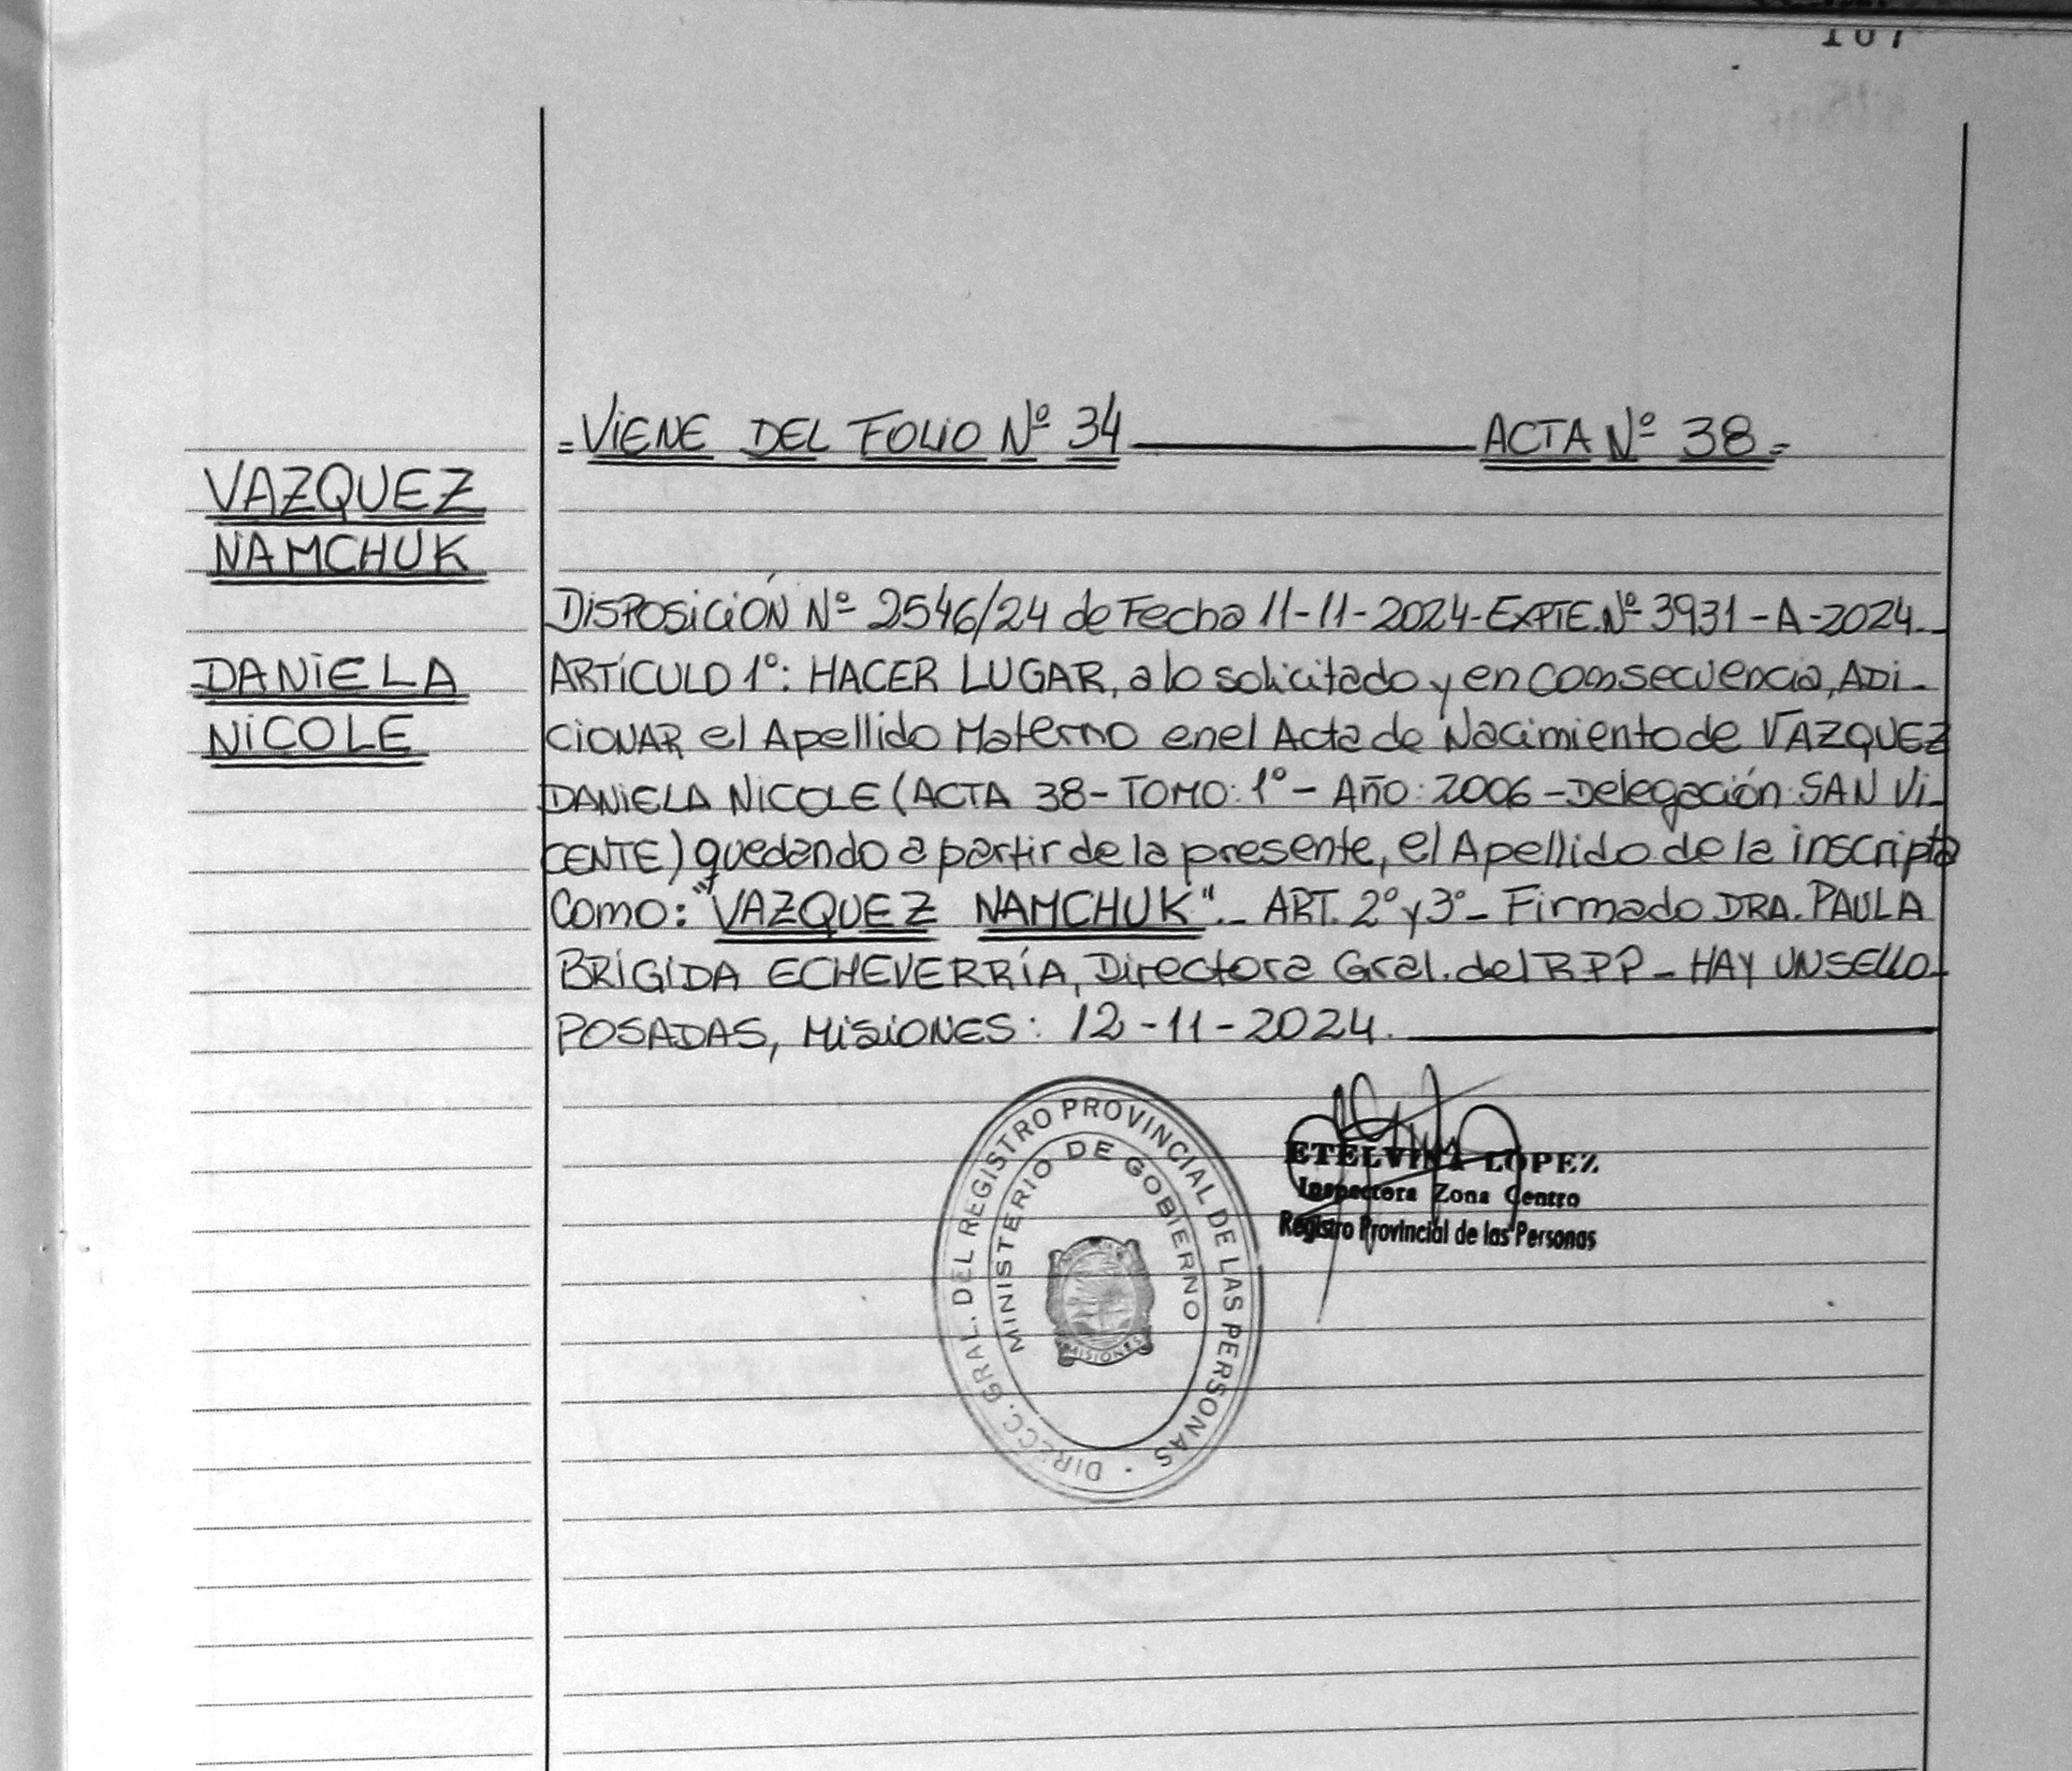 167
=VIENE DEL FOLIO Nº 34 ACTA Nº 38=
VAZQUEZ
NAMCHUK
DANIELA
NICOLE
DISPOSICIÓN Nº 2546/24 de Fecha 11-11-2024-EXPTE.Nº 3931-A-2024.-
ARTÍCULO 1º: HACER LUGAR, a lo solicitado y en consecuencia, ADI-
CIONAR el Apellido Materno en el Acta de Nacimiento de VAZQUEZ
DANIELA NICOLE (ACTA 38- TOMO: 1º - AÑO: 2006 -Delegación: SAN VI-
CENTE) quedando a partir de la presente, el Apellido de la inscripta
como: "VAZQUEZ NAMCHUK".- ART. 2º y 3º- Firmado DRA. PAULA
BRIGIDA ECHEVERRÍA, Directora Gral. del RPP - HAY UN SELLO-
POSADAS, MISIONES: 12-11-2024.
DIRECC. GRAL. DEL REGISTRO PROVINCIAL DE LAS PERSONAS
MINISTERIO DE GOBIERNO
MISIONES
ETELVINA LOPEZ
Inspectora Zona Centro
Registro Provincial de las Personas